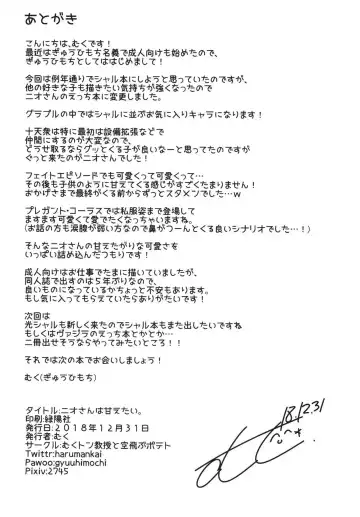 あとがき
こんにちは、むくです！
最近はぎゅうひもち名義で成人向けも始めたので、
ぎゅうひもちとしてははじめまして！
今回は例年通りでシャル本にしようと思っていたのですが、
他の好きな子も描きたい気持ちが強くなったので
ニオさんのえっち本に変更しました。
グラブルの中ではシャルに並ぶお気に入りキャラになります！
十天衆は特に最初は設備拡張などで
仲間にするのが大変なので、
どうせ取るならグッとくる子が良いなーと思ってたのですが
ぐっと来たのがニオさんでした！
フェイトエピソードでも可愛くって可愛くって…
その後も子供のように甘えてくる感じがすごくたまりません！
おかげさまで最終がくる前からずっとスタメンでした…ｗ
プレガント・コーラスでは私服姿まで登場して
ますます可愛くて愛でたくなっちゃいますね。
（お話の方も涙腺が弱い方なので鼻がつーんとくる良いシナリオでした…！）
そんなニオさんの甘えたがりな可愛さを
いっぱい詰め込んだつもりです！
成人向けはお仕事でたまに描いていましたが、
同人誌で出すのは５年ぶりなので、
良いものになっているかちょっと不安もあります。
もし気に入ってもらえていたらありがたいです！
次回は
光シャルも新しく来たのでシャル本もまた出したいですね
もしくはヴァジラのえっち本とかとか…
二冊出せそうならやってみたいところ！！
それでは次の本でお会いしましょう！
むく(ぎゅうひもち)
タイトル:ニオさんは甘えたい。
印刷:緑陽社
発行日:２０１８年１２月３１日
発行者:むく
サークル:むくトン教授と空飛ぶポテト
Twittr:harumankai
Pawoo:gyuuhimochi
Pixiv:2745
18.12.31